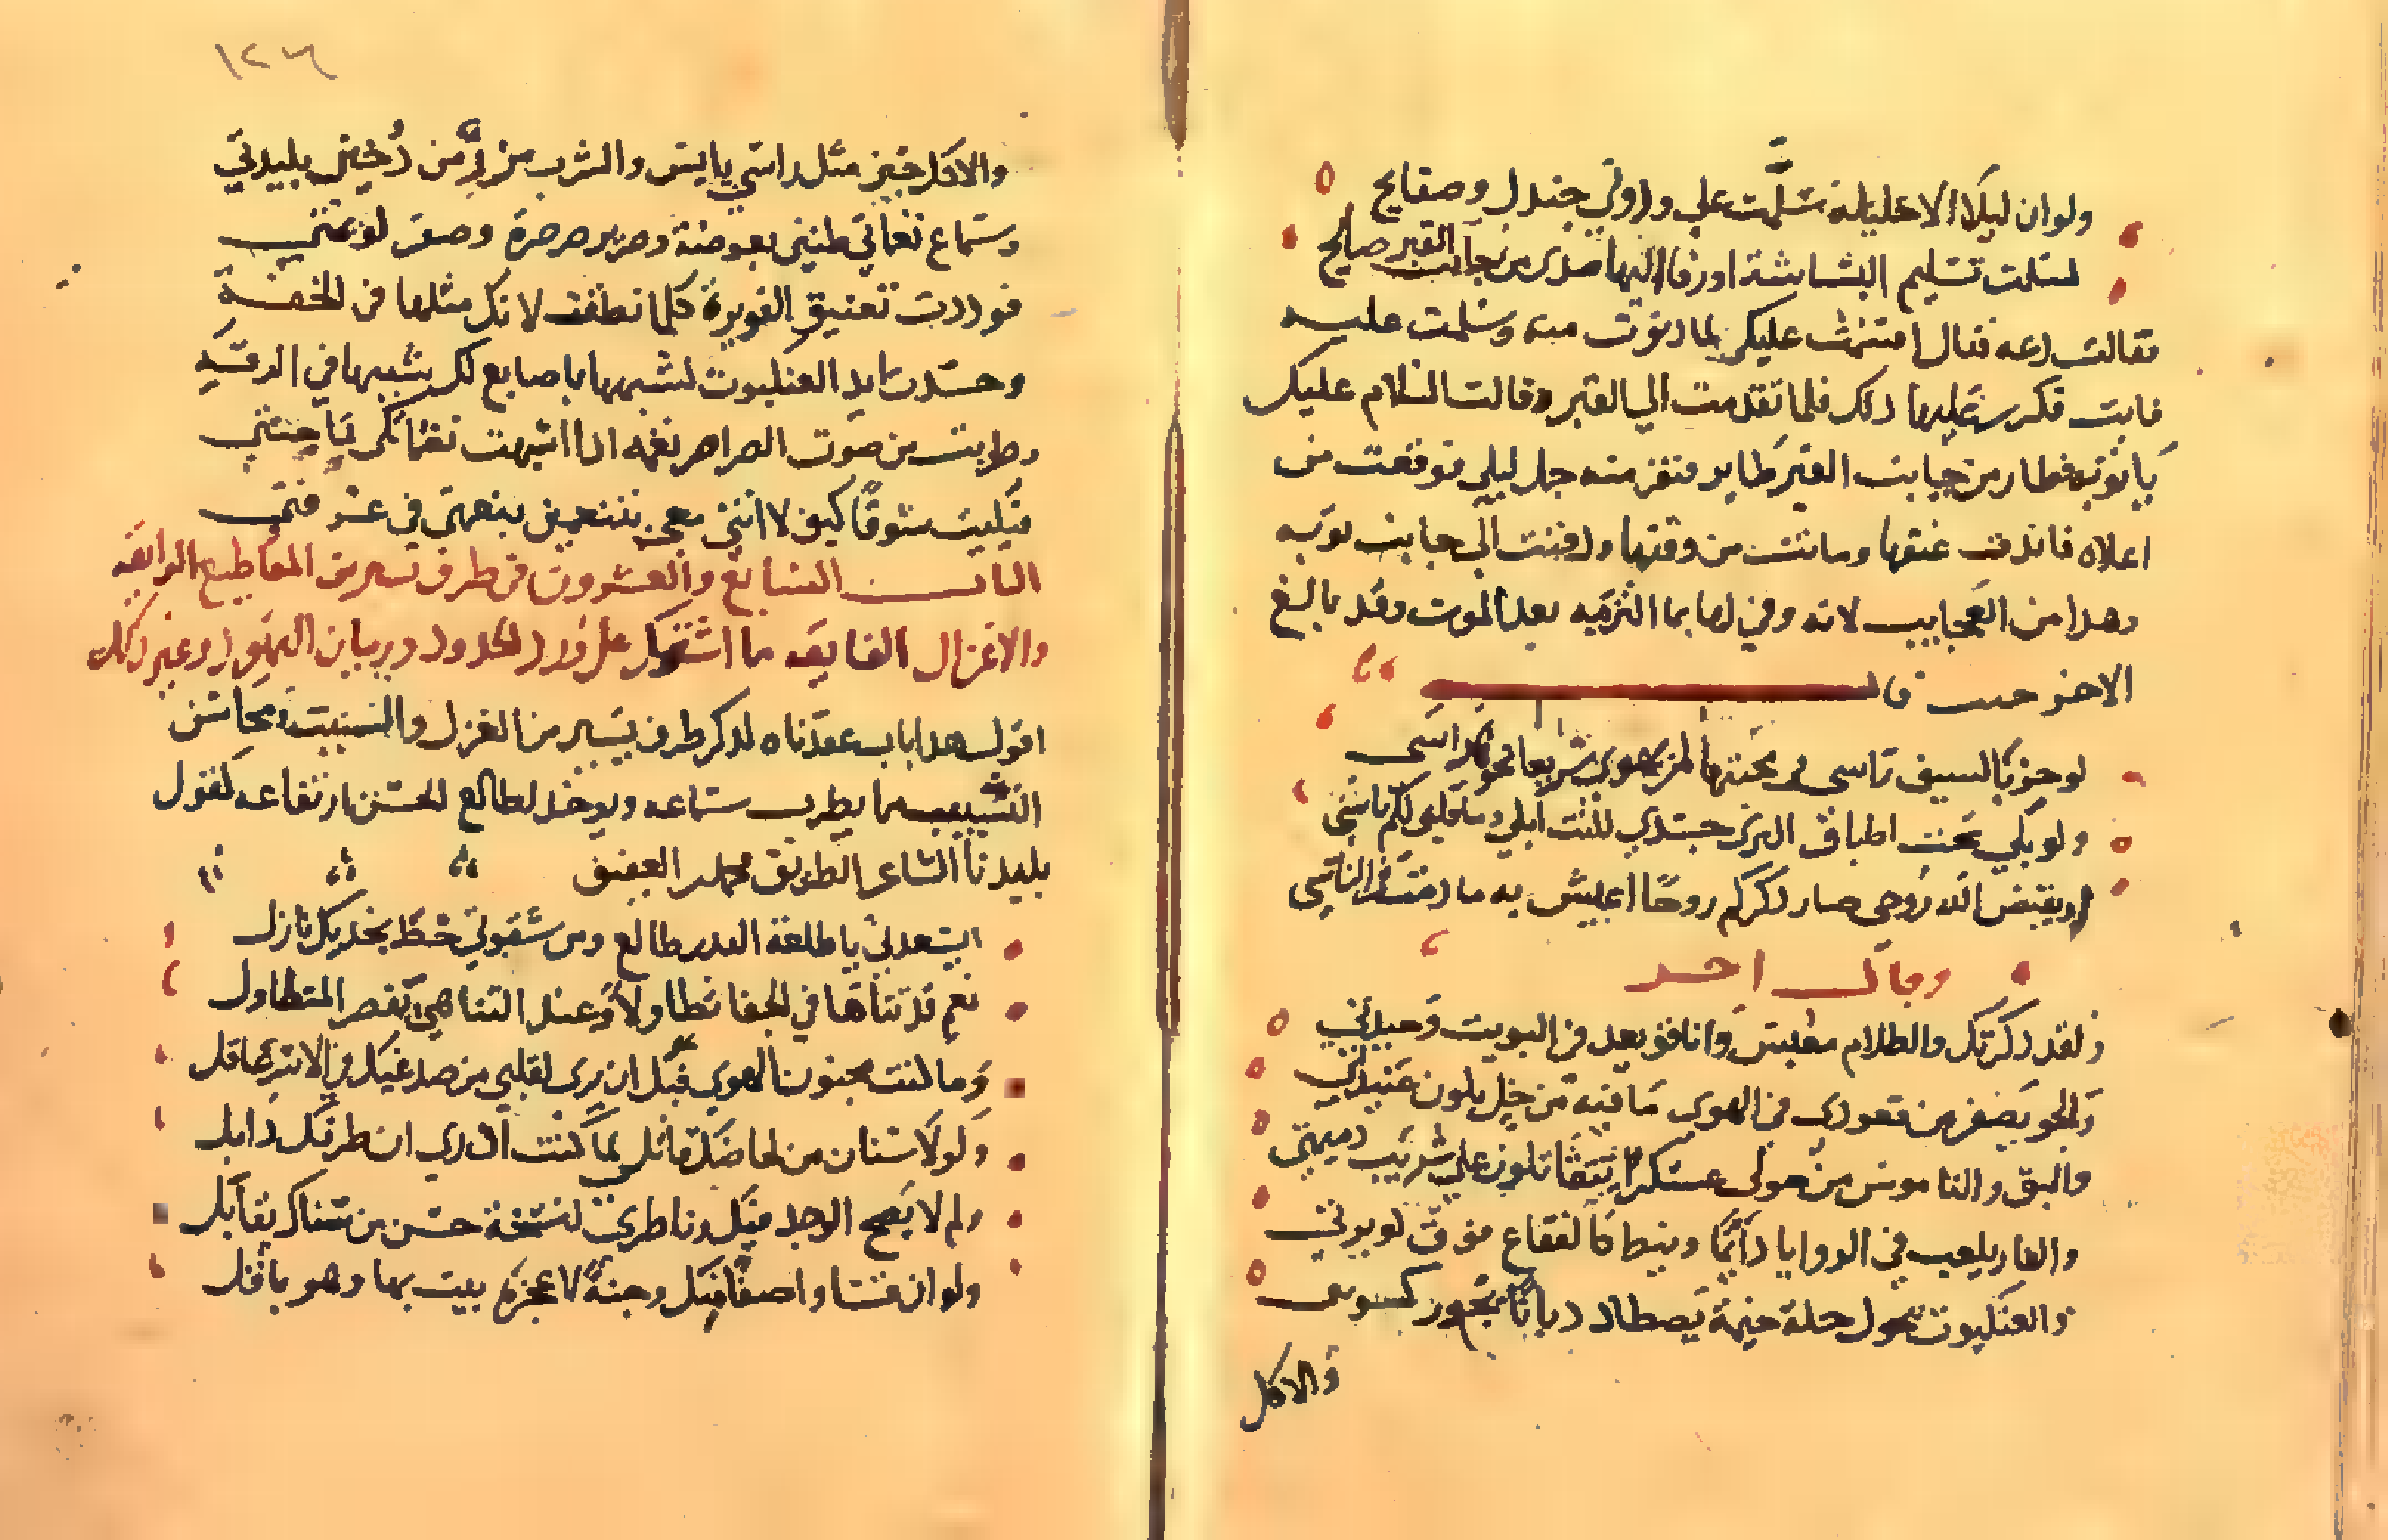 ولوان ليلا الاخليليه سلمت علي ودوني جندل وصفايح
لسلمت تسليم البشاشة اوزقا اليها صدى من جانب القبر صالح
فقالت دعه فقال اقسمت عليكي لما دنوت منه وسلمت عليه
فابت فكرر عليها دلك فلما تقدمت الي القبر وقالت السلام عليك
يا توبه فطار من جانب القبر طاير فنفر منه جمل ليلي فوقعت من
اعلاه فاندق عنقها وماتت من وقتها ودفنت الي جانب توبه
وهدا من العجايب لانه وفي لها بما التزمه بعد الموت وقد بالغ
الاخر حيث قال
لو حز بالسيف راسي في محبتها لمر يهوي سريعا نحوها راسي
ولو بلي تحت اطباق الثرى جسدي لكنت ابلي وما قلبي لكم ناسي
او يقبض الله روحي صار دكركم روحا اعيش به ما دمت في الناس
وقال اخر
ولقد دكرتك والظلام معبس وانا قويعد في البويت وحيدتي
والجو يصفر من قعودي في الهوي ما فيه من خل يلون عنيدتي
والبق والناموس من حولي عسكرا يتقاتلون علي شريب دميمتي
والفار يلعب في الزوايا دايما وينط كالفقاع فوق لويرتي
والعنكبوت بحول حلة خيمة يصطاد دبانا بجور كسوتي
والاكل
١٢٦
والاكل خبز مثل راسي يابس والشرب من زير من دخين بليدتي
وسماع نغماتي طنين بعوضة وصرير صرصرة وصقر لوعتي
فوددت تعنيق الفويرة كلما نطقت لانك مثلها في الخفة
وحسدت ايد العنكبوت لشبهها باصابع لك بشبهها في الدقة
وطربت من صوت الصراصر نغمه ادا اشبهت نغماتكي يا جنتي
فبكيت شوقا كيف لا انتي معي تتنعمين بنعمتي في عشرقتي
الباب السابع والعشرون في طرف يسير من المقاطيع الرايقه
والاغزال الفايقه مما اشتمل على ورد الخدود ورمان النهود وغير دلك
اقول هدا باب عقدناه لدكر طرف يسير من الغزل والنسيب ومحاسن
التشبيب مما يطرب سماعه ويوخد لطالع الحسن ارتفاعه كقول
بليدنا الشاعر الظريف محمد العفيف
ايسعدني يا طلعة البدر طالع ومن شقوتي خط بخديك نازل
نعم قد تناها في الجفا تطاولا وعند التناهي يقصر المتطاول
وما كنت مجنون الهوي قبل ان يرى لقلبي من صدغيك في الاسر عاقل
ولولا سنان من لحاضك قاتلي لما كنت ادري ان طرفك دابل
ولم لا يصح الوجد فيك وناظري لنسخة حسن من سناك يقابل
ولو ان قسا واصفا منك وجنة لاعجزه بيت بها وهو باقل